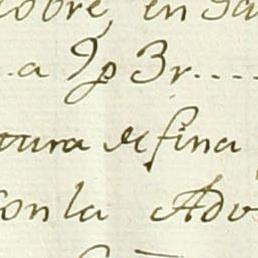 obre, en Sa
a 9p 3r....
tura refina
con la Adv